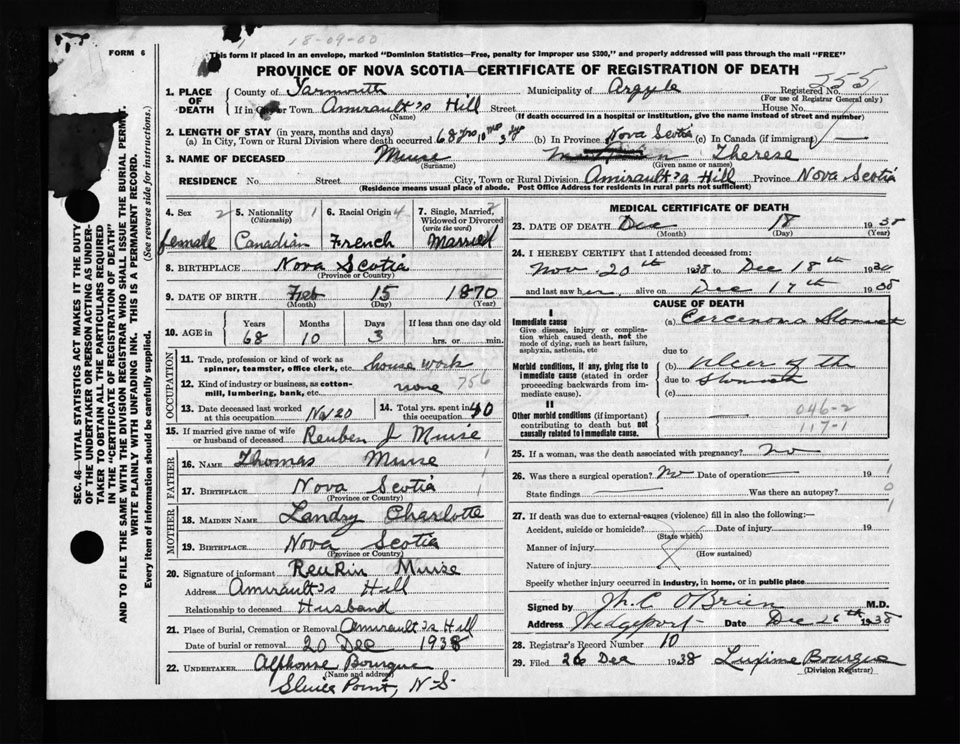 18-09-00
FORM 6
This form if placed in an envelope, marked "Dominion Statistics—Free, penalty for improper use $300," and properly addressed will pass through the mail "FREE"
PROVINCE OF NOVA SCOTIA—CERTIFICATE OF REGISTRATION OF DEATH
1. PLACE OF DEATH County of Yarmouth Municipality of Argyle Registered No. 255
(For use of Registrar General only)
If in City or Town Amirault's Hill Street House No.
(Name) (If death occurred in a hospital or institution, give the name instead of street and number)
2. LENGTH OF STAY (in years, months and days)
(a) In City, Town or Rural Division where death occurred 68 yrs 10 mos 3 dys (b) In Province Nova Scotia (c) In Canada (if immigrant)
3. NAME OF DECEASED Muise Therese
(Surname) (Given name or names)
RESIDENCE No. Street City, Town or Rural Division Amirault's Hill Province Nova Scotia
(Residence means usual place of abode. Post Office Address for residents in rural parts not sufficient)
4. Sex 2 5. Nationality 1 6. Racial Origin 4 7. Single, Married, 2
(Citizenship) Widowed or Divorced
(write the word)
female Canadian French Married
8. BIRTHPLACE Nova Scotia
(Province or Country)
9. DATE OF BIRTH Feb 15 1870
(Month) (Day) (Year)
10. AGE in Years Months Days If less than one day old
68 10 3 hrs. or min.
OCCUPATION
11. Trade, profession or kind of work as
spinner, teamster, office clerk, etc. house work
12. Kind of industry or business, as cotton-
mill, lumbering, bank, etc. none 756
13. Date deceased last worked
at this occupation Nov 20
14. Total yrs. spent in
this occupation 40
15. If married give name of wife
or husband of deceased Reuben J Muise
FATHER
16. NAME Thomas Muise 1
17. BIRTHPLACE Nova Scotia 1
(Province or Country)
MOTHER
18. MAIDEN NAME Landry Charlotte
19. BIRTHPLACE Nova Scotia
(Province or Country)
20. Signature of informant Reubin Muise
Address Amirault's Hill
Relationship to deceased Husband
21. Place of Burial, Cremation or Removal Amirault's Hill
Date of burial or removal 20 Dec 1938
22. UNDERTAKER Alphonse Bourque
(Name and address)
Sluice Point, N-S-
MEDICAL CERTIFICATE OF DEATH
23. DATE OF DEATH Dec 18 1938
(Month) (Day) (Year)
24. I HEREBY CERTIFY that I attended deceased from:
Nov. 20th 1938 to Dec 18th 1938
and last saw her alive on Dec 17th 1938
CAUSE OF DEATH
I
Immediate cause (a) Carcenoma Stomach
Give disease, injury or complica-
tion which caused death, not the
mode of dying, such as heart failure,
asphyxia, asthenia, etc
due to
Morbid conditions, if any, giving rise to
immediate cause (stated in order
proceeding backwards from im-
mediate cause).
(b) Ulcer of the
due to Stomach
(c)
II
Other morbid conditions (if important)
contributing to death but not
causally related to immediate cause.
046-2
117-1
25. If a woman, was the death associated with pregnancy? no
26. Was there a surgical operation? No Date of operation 19 1
State findings Was there an autopsy? 0
27. If death was due to external causes (violence) fill in also the following:— 1
Accident, suicide or homicide? Date of injury 19
(State which)
Manner of injury
(How sustained)
Nature of injury
Specify whether injury occurred in industry, in home, or in public place
Signed by O'Brien M.D.
Address Wedgeport Date Dec 26th 1938
28. Registrar's Record Number 10
29. Filed 26 Dec 1938 Bourque
(Division Registrar)
SEC. 46—VITAL STATISTICS ACT MAKES IT THE DUTY
OF THE UNDERTAKER OR PERSON ACTING AS UNDER-
TAKER TO OBTAIN ALL THE PARTICULARS REQUIRED
IN THE "CERTIFICATE OF REGISTRATION OF DEATH"
AND TO FILE THE SAME WITH THE DIVISION REGISTRAR WHO SHALL ISSUE THE BURIAL PERMIT.
WRITE PLAINLY WITH UNFADING INK. THIS IS A PERMANENT RECORD.
Every item of information should be carefully supplied. (See reverse side for instructions.)